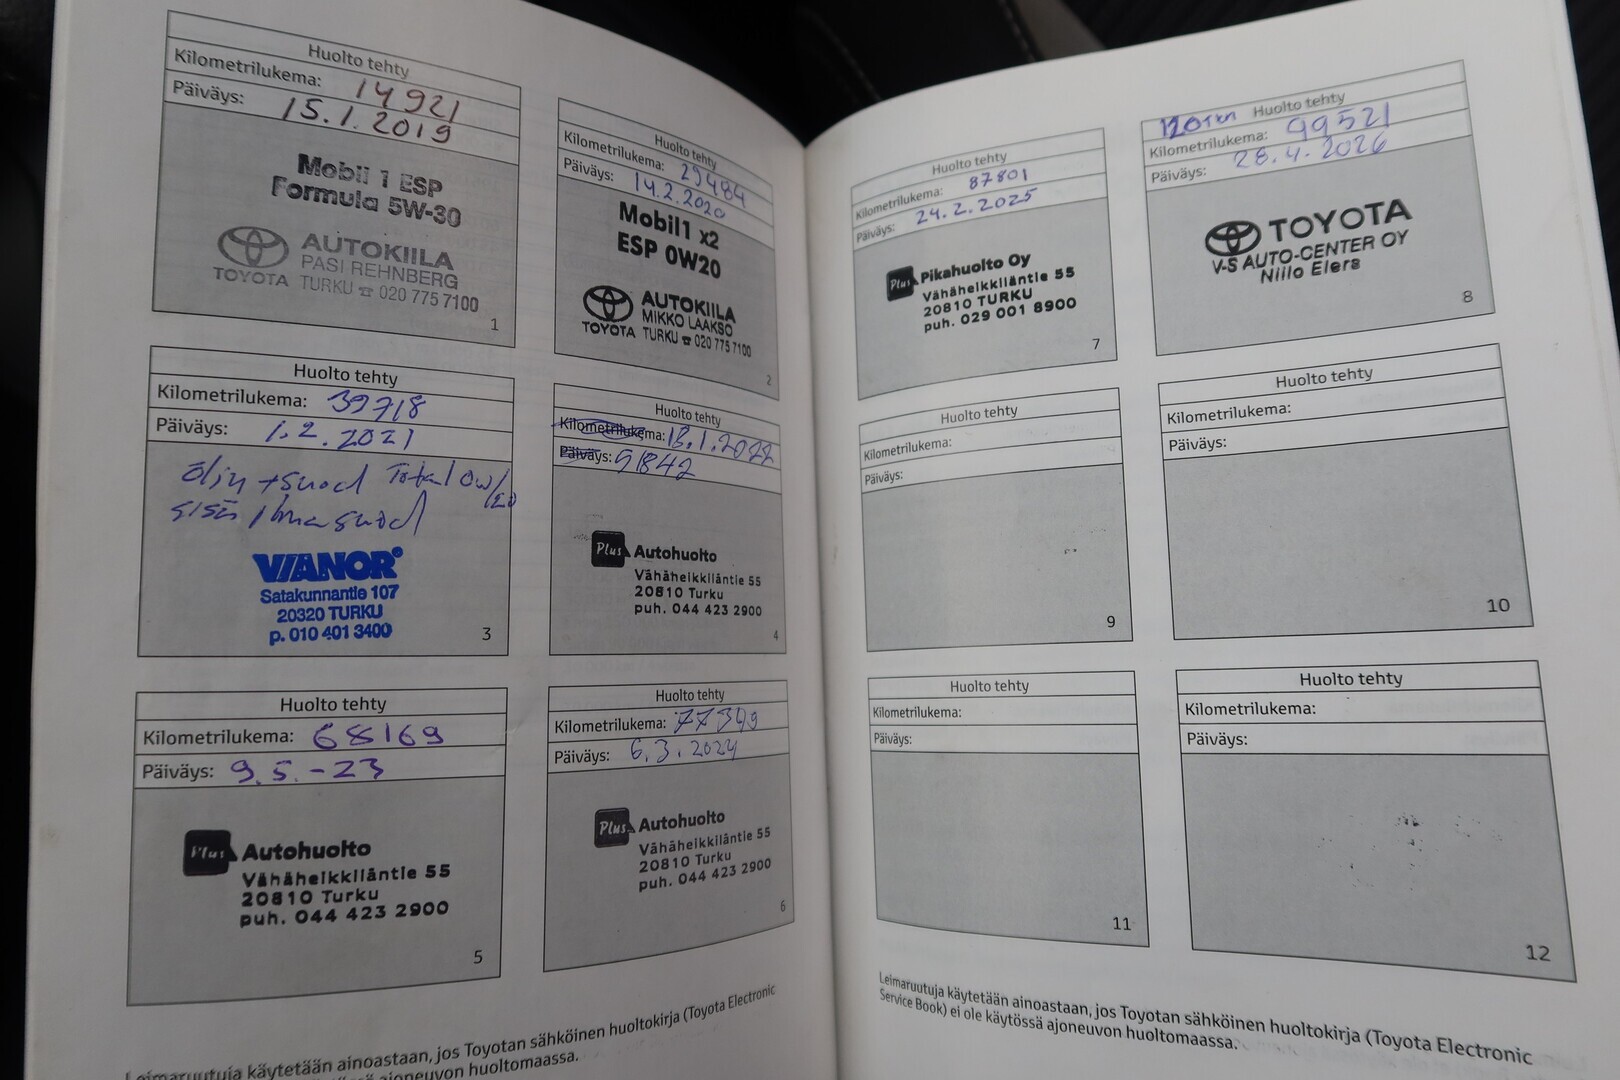 Huolto tehty
Kilometrilukema: 14921
Päiväys: 15.1.2019
Mobil 1 ESP
Formula 5W-30
AUTOKIILA
PASI REHNBERG
TOYOTA TURKU ☎ 020 775 7100
1
Huolto tehty
Kilometrilukema: 29484
Päiväys: 14.2.2020
Mobil1 x2
ESP 0W20
AUTOKIILA
MIKKO LAAKSO
TOYOTA TURKU ☎ 020 775 7100
2
Huolto tehty
Kilometrilukema: 39718
Päiväys: 1.2.2021
öljy + suod Total 0W/20
sisä ilmasuod
VIANOR®
Satakunnantie 107
20320 TURKU
p. 010 401 3400
3
Huolto tehty
Kilometrilukema: 18.1.2022
Päiväys: 51842
Plus Autohuolto
Vähäheikkiläntie 55
20810 Turku
puh. 044 423 2900
4
Huolto tehty
Kilometrilukema: 68169
Päiväys: 9.5.-23
Plus Autohuolto
Vähäheikkiläntie 55
20810 Turku
puh. 044 423 2900
5
Huolto tehty
Kilometrilukema: 77349
Päiväys: 6.3.2024
Plus Autohuolto
Vähäheikkiläntie 55
20810 Turku
puh. 044 423 2900
6
Leimaruutuja käytetään ainoastaan, jos Toyotan sähköinen huoltokirja (Toyota Electronic
ajoneuvon huoltomaassa.
Huolto tehty
Kilometrilukema: 87801
Päiväys: 24.2.2025
Plus Pikahuolto Oy
Vähäheikkiläntie 55
20810 TURKU
puh. 029 001 8900
7
120tkm Huolto tehty
Kilometrilukema: 99521
Päiväys: 28.4.2026
TOYOTA
V-S AUTO-CENTER OY
Niilo Elers
8
Huolto tehty
Kilometrilukema:
Päiväys:
9
Huolto tehty
Kilometrilukema:
Päiväys:
10
Huolto tehty
Kilometrilukema:
Päiväys:
11
Huolto tehty
Kilometrilukema:
Päiväys:
12
Leimaruutuja käytetään ainoastaan, jos Toyotan sähköinen huoltokirja (Toyota Electronic
Service Book) ei ole käytössä ajoneuvon huoltomaassa.